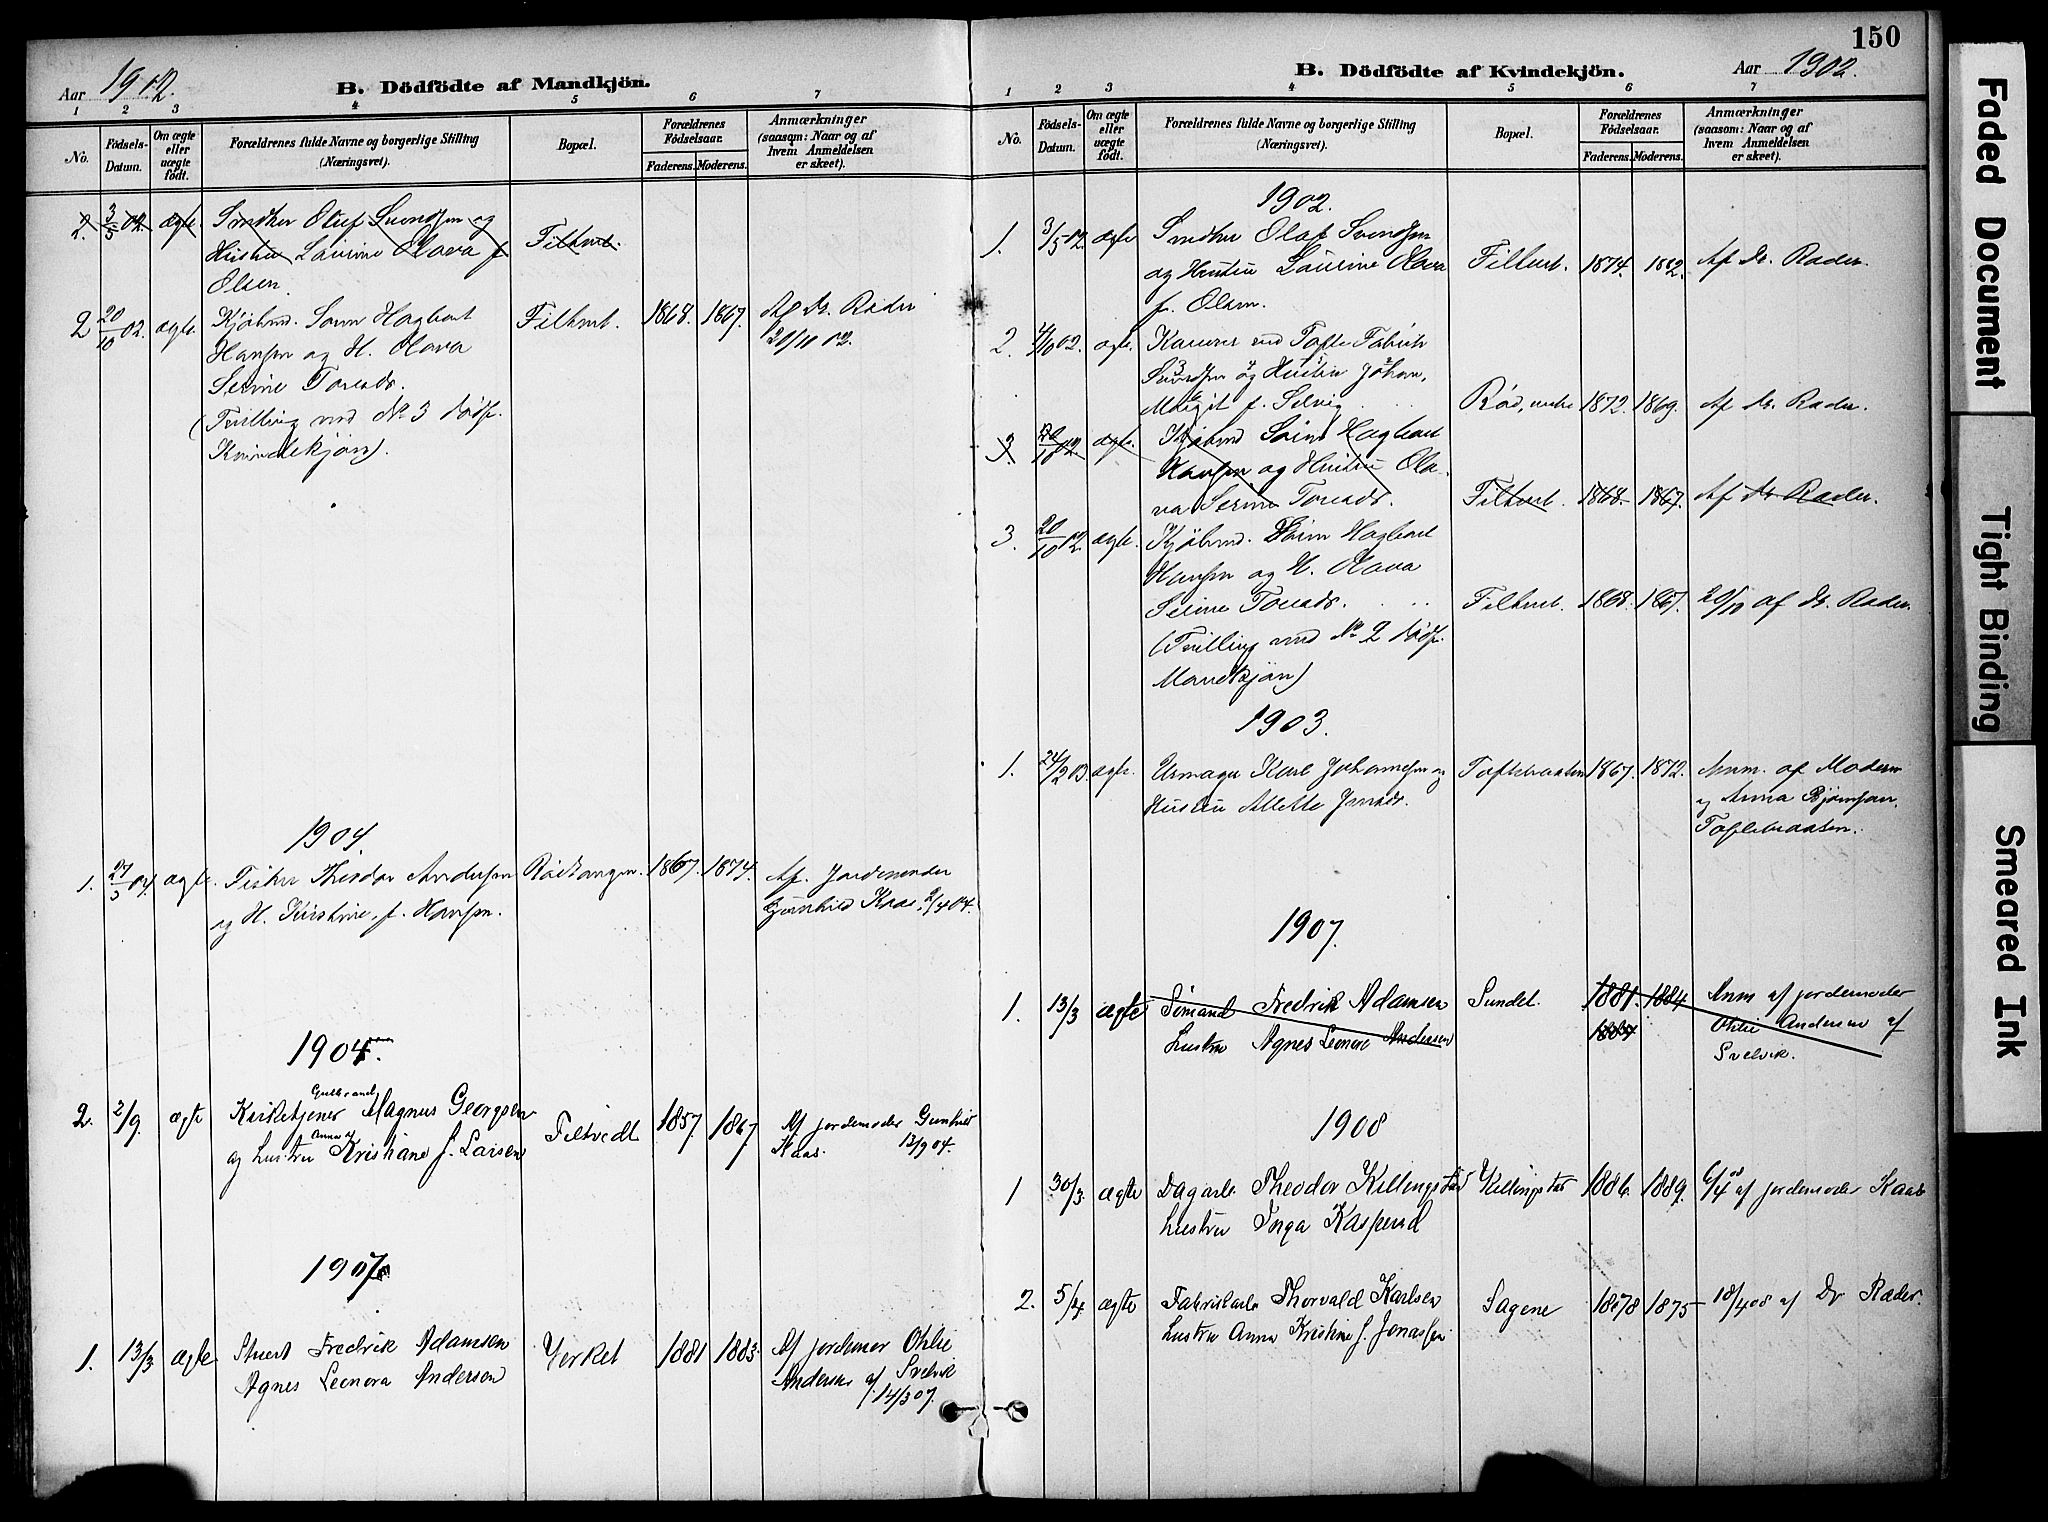 150
Aar 1902.
B. Dödfödte af Mandkjön.
1 2 3 4 5 6 7
No.
Födsels-Datum.
Om ægte eller uægte födt.
Forældrenes fulde Navne og borgerlige Stilling (Næringsvei).
Bopæl.
Forældrenes Födselsaar.
Faderens. Moderens.
Anmærkninger (saasom: Naar og af hvem Anmeldelsen er skeet).
2. 3/5 02. ægte. Snedker Oluf Svendsen og
Hustru Laurine Olava f. Filtvet.
Olsen.
2 20/10 02. ægte. Kjøbmd. Søren Hagbart Filtvet. 1868. 1867. Af Dr. Rader
Hansen og H. Olava 20/10 02.
Serine Toresdr.
(Tvilling med No 3 dødf.
Kvindekjøn).
1904.
1. 27/3 04. ægte. Fisker Theodor Andersen Rødtangen. 1867. 1874. Af Jordemoder
og H. Kristine f. Hansen. Gunhild Kaas 2/4 04.
1904.
2. 2/9. ægte Kirketjener Gulbrand Magnus Georgsen Filtvedt 1857. 1867 Af jordemoder Gunhild
og hustru Anna Kristiane f. Larsen Kaas. 13/9 04.
1907
1. 13/3 ægte Stuert Fredrik Adamsen Verket 1881 1883. Af jordemor Othlie
Agnes Leonora Andersen Andersen af Svelvik
14/3 07.
B. Dödfödte af Kvindekjön.
Aar 1902.
1 2 3 4 5 6 7
No.
Födsels-Datum.
Om ægte eller uægte födt.
Forældrenes fulde Navne og borgerlige Stilling (Næringsvei).
Bopæl.
Forældrenes Födselsaar.
Faderens. Moderens.
Anmærkninger (saasom: Naar og af hvem Anmeldelsen er skeet).
1902.
1. 3/5 02. ægte Snedker Olaf Svendsen
og Hustru Laurine Olava Filtvet. 1874. 1882. Af Dr. Rader.
f. Olsen.
2. 4/10 02. ægte. ved Tofte Fabrik
Svendsen og Hustru Johan.
Margit f. Selvig Rød, 1872. 1869. Af Dr. Rader.
3. 20/10 02. ægte. Kjøbmd Søren Hagbart
Hansen og Hustru Ola-
va Serine Toresdr. Filtvet. 1868. 1867. Af Dr Rader.
3. 20/10 02. ægte. Kjøbmd. Søren Hagbart
Hansen og H. Olava
Serine Toresdr. Filtvet. 1868. 1867. 20/10 af Dr. Rader.
(Tvilling med No 2 dødf.
Mandkjøn)
1903.
1. 24/2 03 ægte. Urmager Karl Johannesen og Toftebraaten 1867. 1872. Anm. af Moderen
Hustru Alette Jensdr. og Anna Bjørnsen.
Toftebraaten.
1907.
1. 13/3 ægte Sømand Fredrik Adamsen Sundet. 1881. 1884 Anm af jordemoder
hustru Agnes Leonore Andersen 1884 Othlie Andersen af
Svelvik.
1908
1 30/3. ægte Dagarb. Theodor Killingstad Killingstad 1886. 1889. 6/4 08 af jordemoder Kaas
hustru Inga Kasperud
2. 5/4 ægte Fabrikarb. Thorvald Karlsen Sagene 1878 1875 18/4 08 af Dr Ræder.
hustru Anna Kristine f. Jonassen
Faded Document
Tight Binding
Smeared Ink